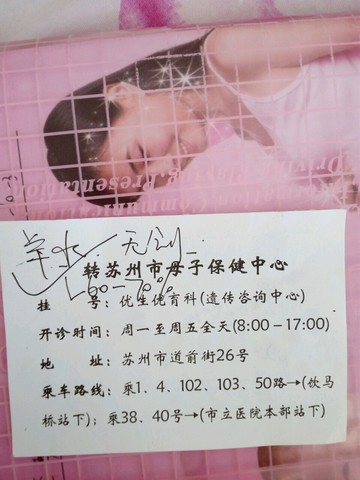 Driving
Presentation
羊水 无创
60-70%
转苏州市母子保健中心
挂 号：优生优育科(遗传咨询中心)
开诊时间：周一至周五全天(8:00-17:00)
地 址：苏州市道前街26号
乘车路线：乘1、4、102、103、50路→(饮马
桥站下)；乘38、40号→(市立医院本部站下)